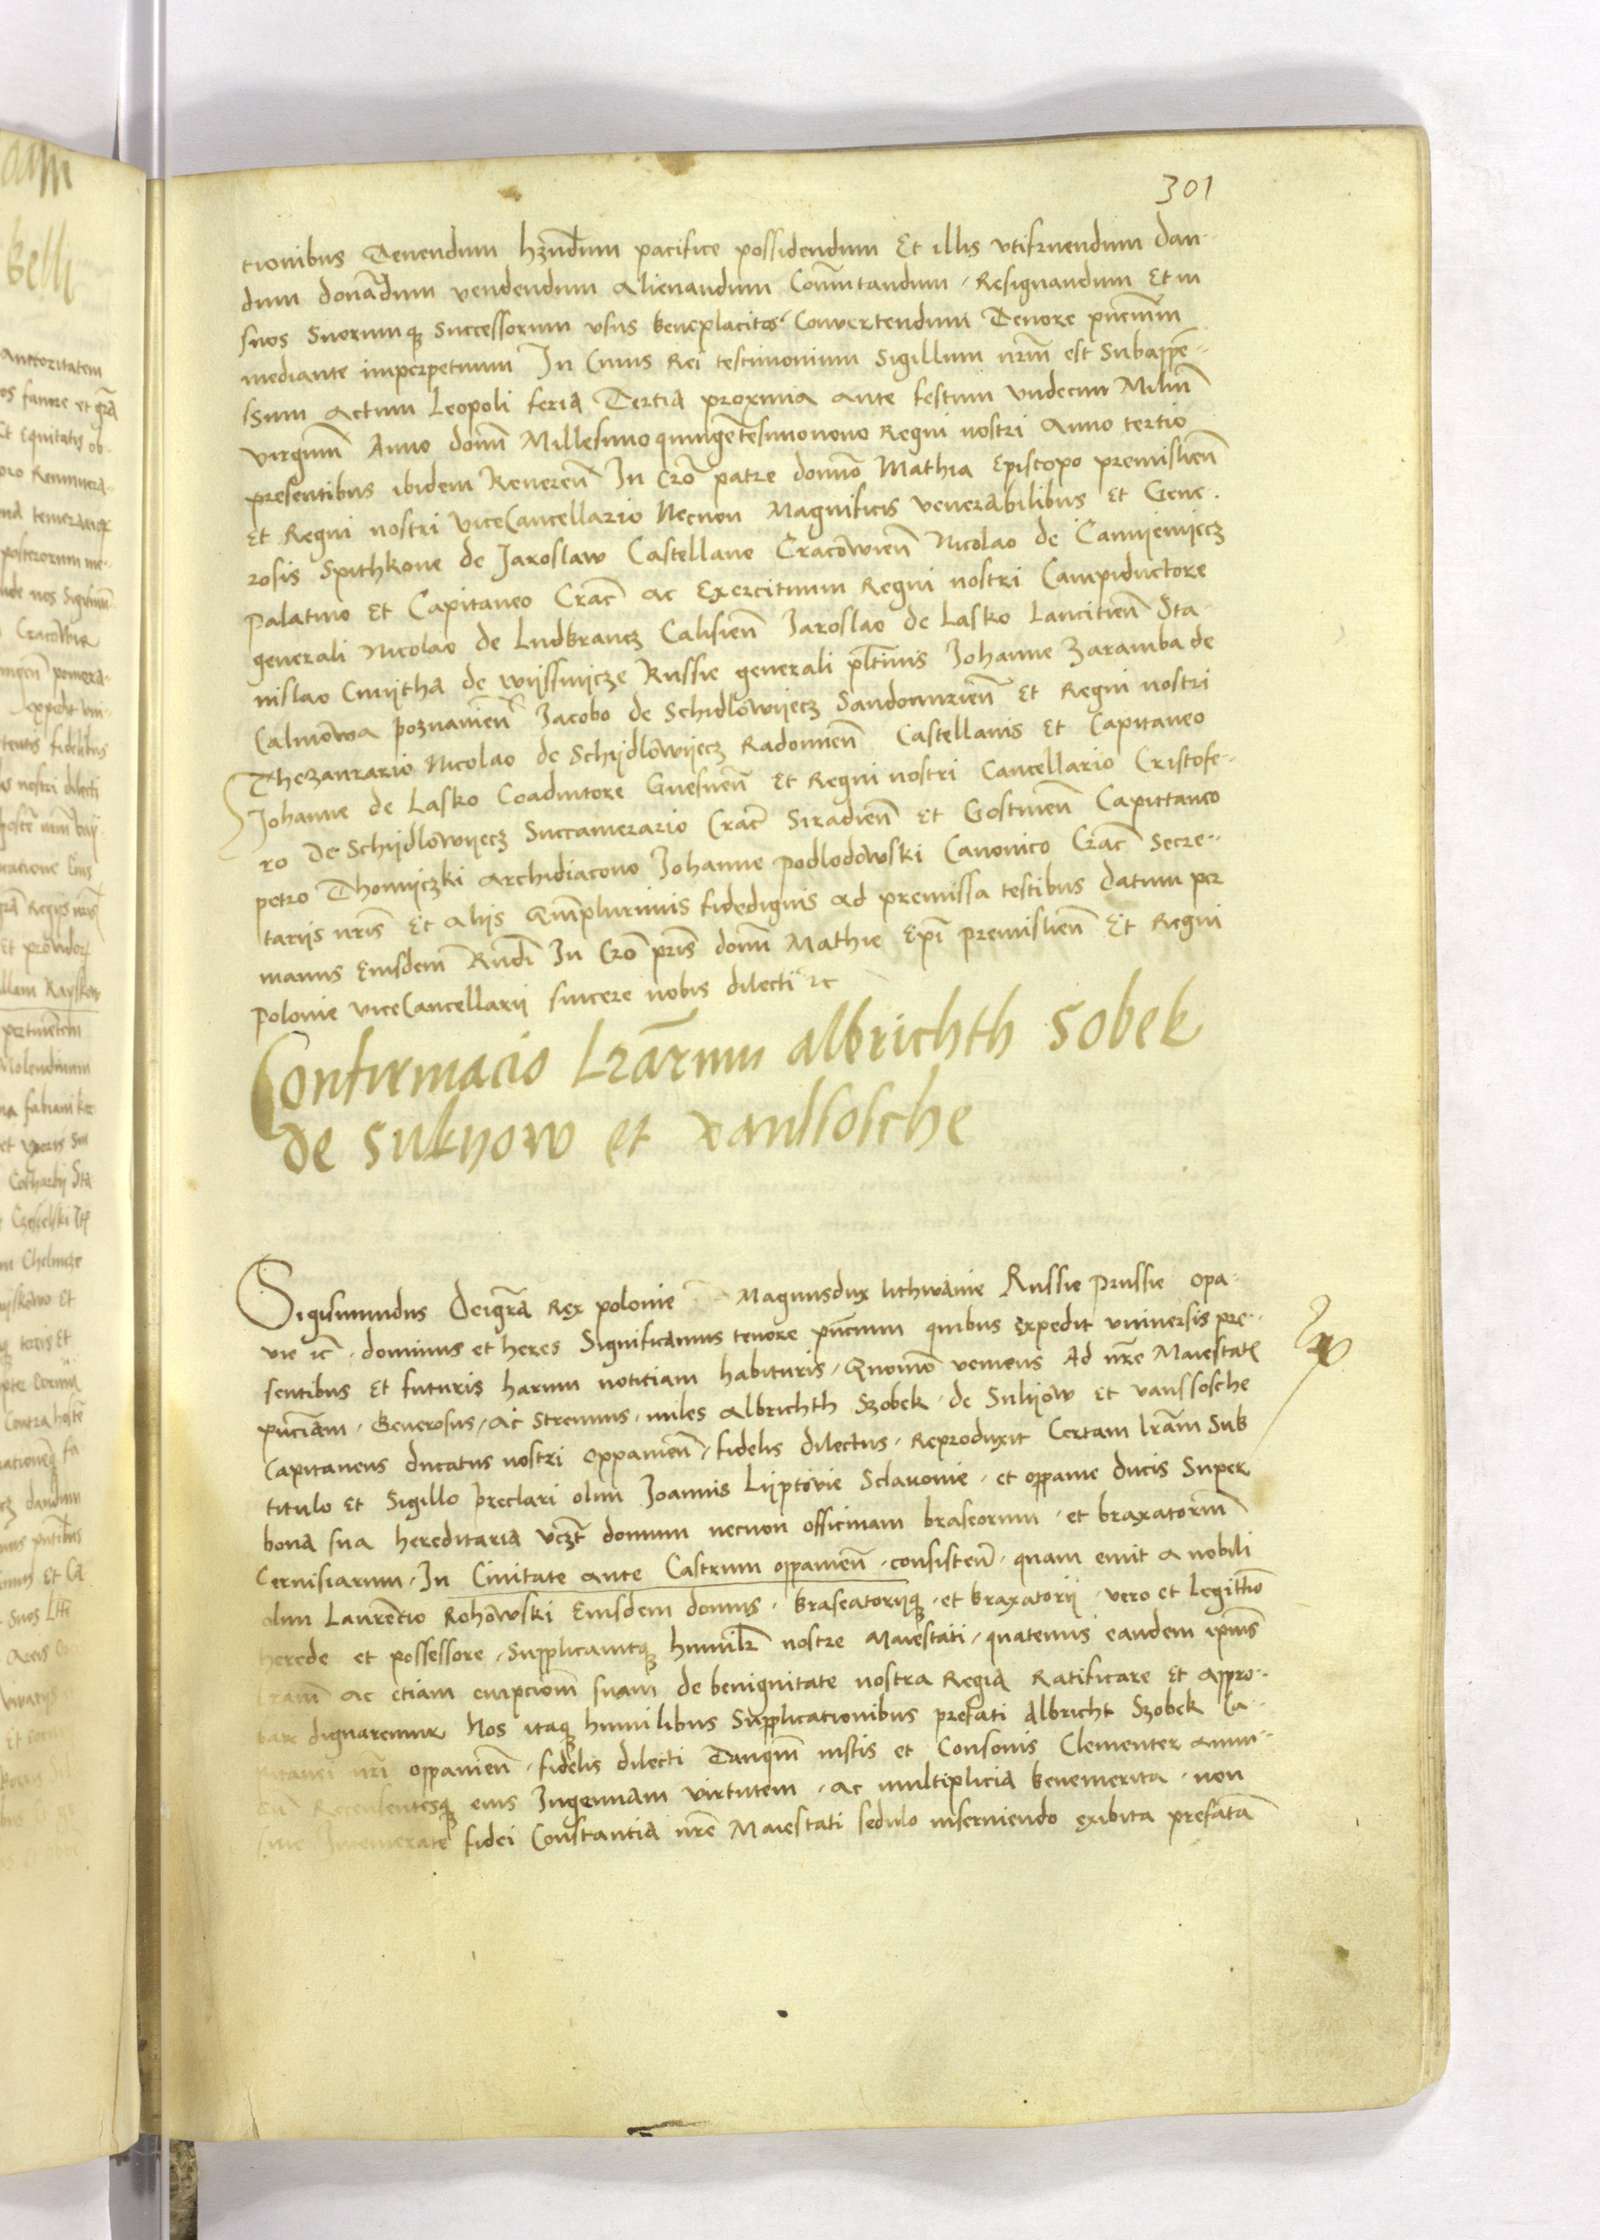 301
tionibus Tenendum hn̄dum pacifice possidendum Et illis vtifruendum dan-
dum donādum vendendum Alienandum Com̄utandum Resignandum Et in
suos Suorumq3 Successorum vsus beneplacitos Convertendum Tenore pn̄cium
mediante imperpetuum In Cuius Rei testimonium Sigillum nr̄m est Subappē-
ssum Actum Leopoli feria Tertia proxima ante festum Vndecim Miliū
virginū Anno domī Millesimoquingētesimonono Regni nostri Anno tertio
presentibus ibidem Reuereñ In Cr̄o patre domīo Mathia Episcopo premislieñ
Et Regni nostri ViceCancellario Necnon Magnificis venerabilibus Et Gene-
rosis Spithkone de Jaroslaw Castellane Cracōwieñ Nicolao de Camijenijecz
Palatino Et Capitaneo Crac̄ ac Exercituum Regni nostri Campiductore
generali Nicolao de Lubrancz Calisieñ Jaroslao de Lasko Lancitieñ Sta-
nislao Cmijtha de wijssnijcze Russie generali pl̄tinis Johanne Zaramba de
Calinōwa Poznanieñ Jacobo de Schidlōwijecz Sandomirieñ Et Regni nostri
Thezaurario Nicolao de Schijdlōwijecz Radomieñ Castellanis Et Capitaneo
Johanne de Lasko Coadiutore Gnesneñ Et Regni nostri Cancellario Cristofe-
ro De Schijdlōwijecz Succamerario Crac̄ Siradieñ Et Gostineñ Capittaneo
petro Thomijczki Archidiacono Johanne Podlodōwski Canonico Crac̄ Secre-
tariis nr̄is Et Alijs Qm̄plurimis fidedignis ad premissa testibus Datum per
manus Eiusdem Rn̄di In Cr̄o pr̄is domī Mathie Ep̄i Premislieñ Et Regni
Polonie viceCancellarij sincere nobis dilecti ꝛc
Confirmacio Lr̄arum albrichth Sobek
de Suknow et vanssosche
Sigismundus Deigr̄a Rex polonie Magnusdux lithwanie Russie Prussie Opa-
vie ꝛc̄ dominus et heres Significamus tenore pn̄cium quibus expedit vniuersis pre-
sentibus Et futuris harum notitiam habituris Quomō veniens Ad nr̄e Maiestatꝭ
pn̄ciam Generosus Ac Strenuus miles Albrichth Szobek de Sulijōw Et vanssosche
Capitaneus ducatus nostri Oppavieñ fidelis dilectus Reproduxit Certam lr̄am Sub
titulo Et Sigillo Preclari olim Joannis Lijptōvie Sclauonie et oppavie ducis Super
bona sua hereditaria vcz̄t domum necnon officinam braseorum et braxatoriū
Cervisiarum In Ciuitate ante Castrum oppavieñ consisteñ quam emit A nobili
olim Laurētio Rohōwski Eiusdem domus braseatorijq3 et braxatorij vero et Legitīo
herede et possessore Supplicauitq3 humilr̄ nostre Maiestati quatenus eandem ip̄ius
lr̄am ac etiam empciom̄ suam de benignitate nostra Regia Ratificare Et Appro-
bare dignaremur Nos itaq3 humilibus Supplicationibus prefati Albricht Szobek Ca-
pitanei nr̄i oppavieñ fidelis dilecti Tanqm̄ iustis et Consonis Clementer Annu-
Recensentesq3 eius Ingenuam virtutem ac multiplicia benemerita non
sine Intemerate fidei Constantia nr̄e Maiestati sedulo inseruiendo exibita prefatā